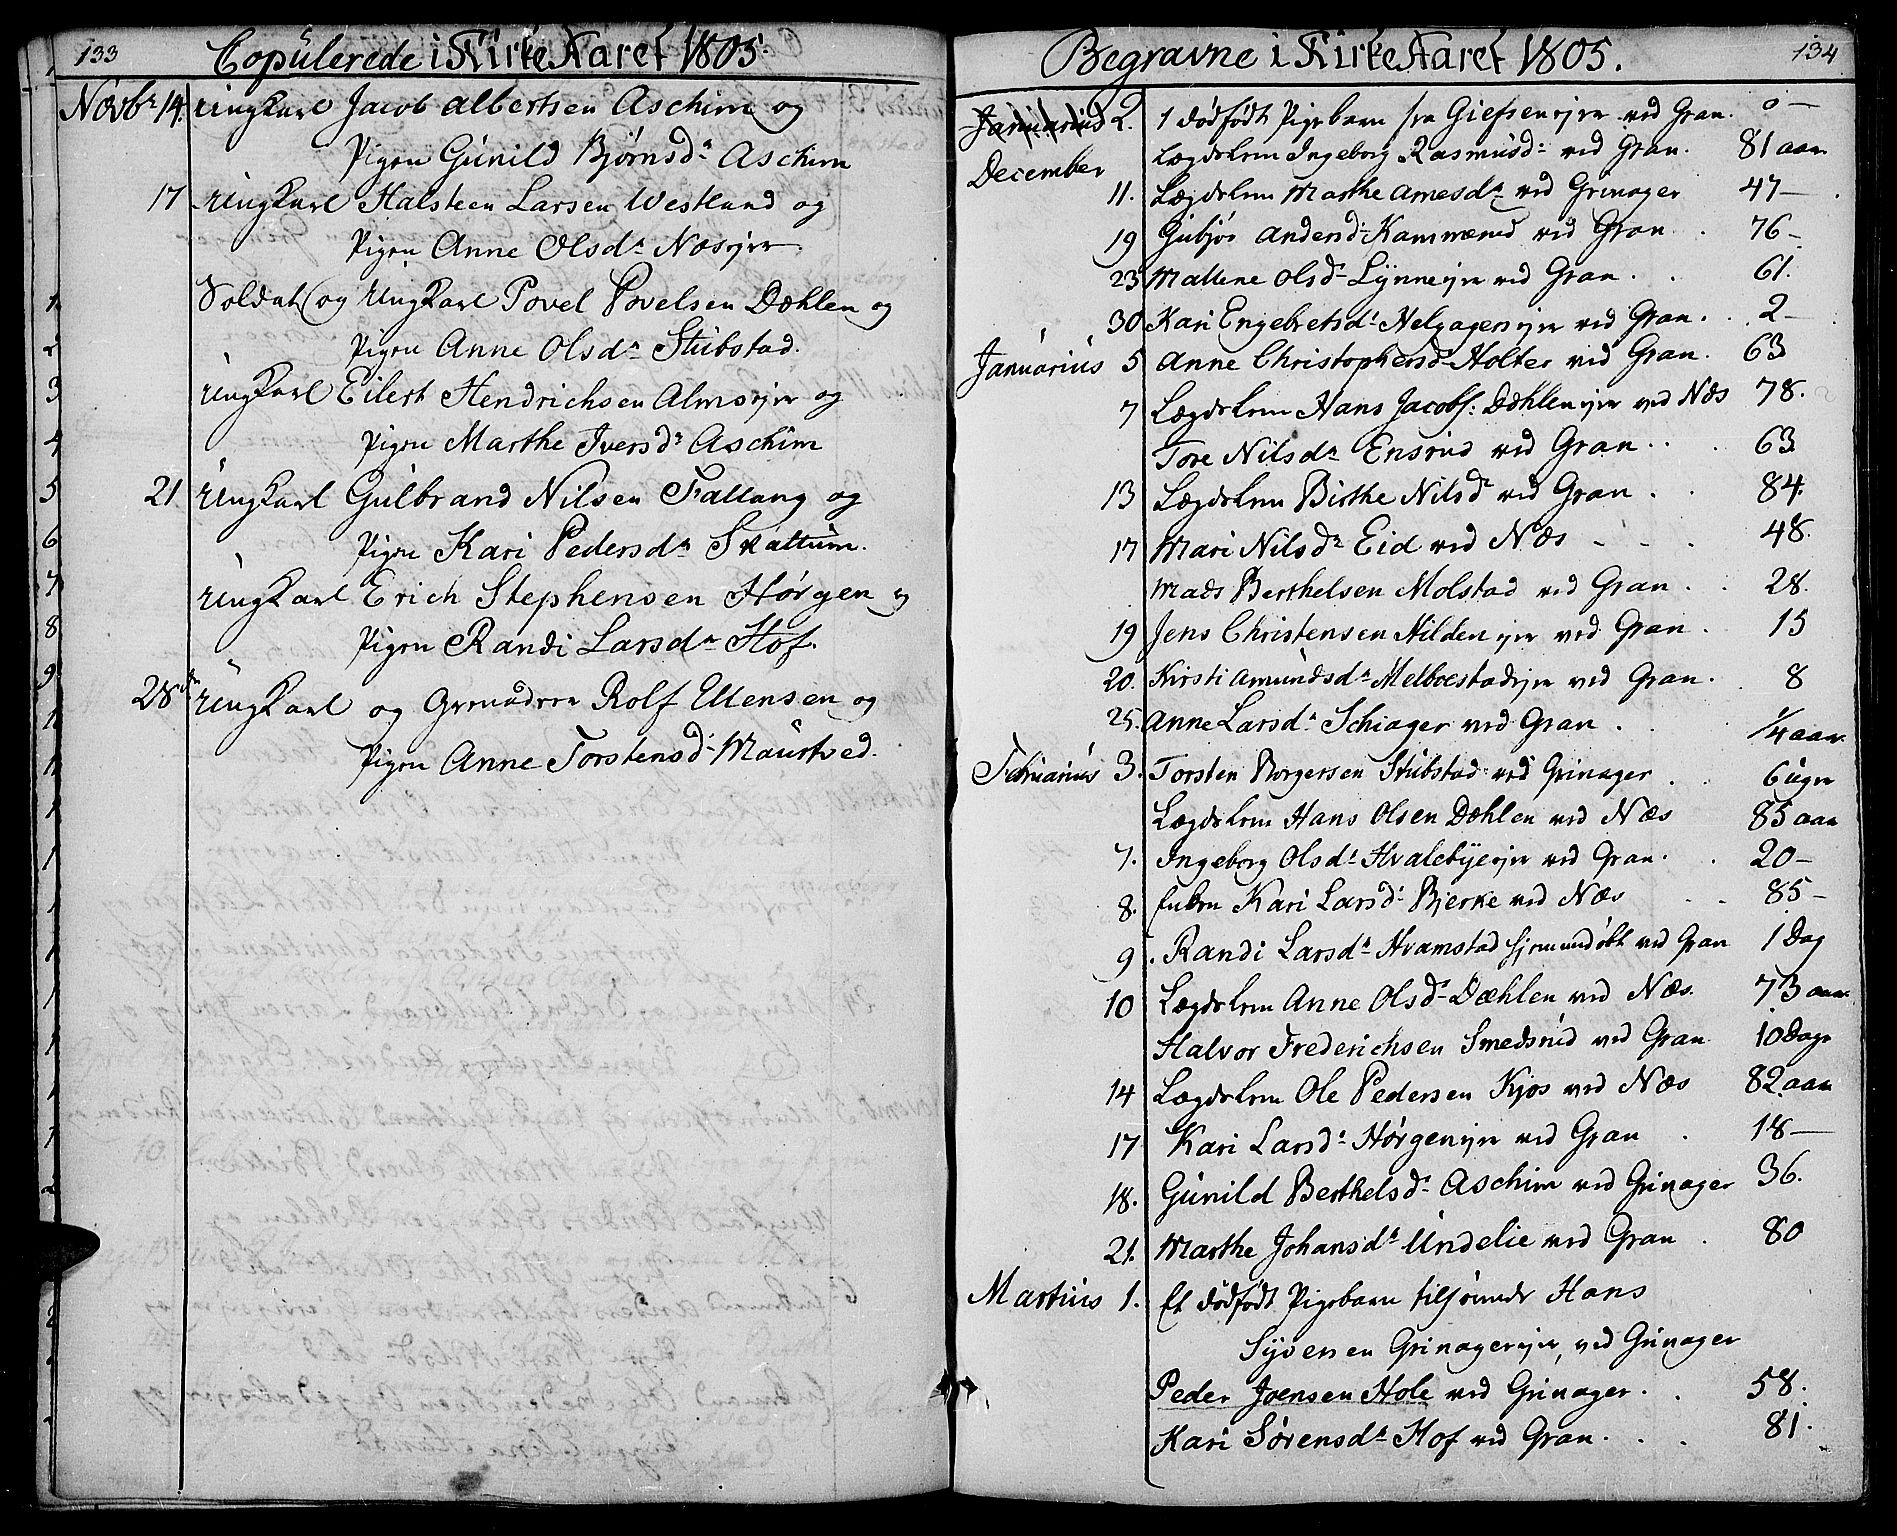 133
Copulerede i Kirke Aaret 1805.
Novbr 14. Ungkarl Jacob Albertsen Aschim og
Pigen Gunild Bjørnsdr Aschim
17 Ungkarl Halsteen Larsen Westlund og
Pigen Anne Olsdr Næsejer
Soldat og Ungkarl Povel Povelsen Dæhlen og
Pigen Anne Olsdr Stubstad.
Ungkarl Eilert Hendrichsen Almsejer og
Pigen Marthe Iversdr Aschim
21 Ungkarl Gulbrand Nilsen Fallang og
Pigen Kari Pedersdr Skattum.
Ungkarl Erich Stephensen Hørgen og
Pigen Randi Larsdr Hof.
28de Ungkarl og Grenadeer Rolf Ellensen og
Pigen Anne Torstensdr Maurtved.
1.
2
3
4
5
6
7
8
9
134
Begravne i Kirke Aaret 1805.
Januarius 2. 1 dødfødt Pigebarn fra Giefsenejer ved Gran. 0 —
December Lægdslem Ingeborg Rasmusdr ved Gran. 81 aar
11. Lægdslem Marthe Arnesdr ved Grinager 47 —
19 Gubjør Andersdr Kammerud ved Gran. 76 —
23 Mallene Olsdr Lynneejer ved Gran. 61.
30 Kari Engebretsdr Helgagersejer ved Gran. 2 —
Januarius 5 Anne Christophersdr Holter ved Gran. 63
7 Lægdslem Hans Jacobs: Dæhlenejer ved Næs 78.
Tore Nilsdr Ensrud ved Gran . . 63
13 Lægdslem Birthe Nilsdr ved Gran . . 84.
17 Mari Nilsdr Eid ved Næs - - - 48.
Mads Berthelsen Molstad ved Gran . . 28.
19 Jens Christensen Hildenejer ved Gran . 15
20. Kirsti Amundsdr Melboestadejer ved Gran. 8
25. Anne Larsdr Schiager ved Gran . . 1/4 aar
Februarius 3. Torsten Borgersen Stubstad ved Grinager . 6 uger
Lægdslem Hans Olsen Dæhlen ved Næs 85 aar
7. Ingeborg Olsdr Hvalebyeejer ved Gran. . 20 —
8. Enken Kari Larsdr Bjerke ved Næs . . 85 —
9. Randi Larsdr Hvamstad hjemmedøbt ved Gran 1 Dag
10 Lægdslem Anne Olsdr Dæhlen ved Næs. 73 aar
Halvor Frederichsen Smedsrud ved Gran 10 Dage
14 Lægdslem Ole Pedersen Kjos ved Næs 82 aar
17 Kari Larsdr Hørgenejer ved Gran . 18 —
18. Gunild Berthelsdr Aschim ved Grinager 36.
21. Marthe Johansdr Undelie ved Gran . 80
Martius 1. Et dødfødt Pigebarn tilhørende Hans
Syversen Grinagerejer, ved Grinager
Peder Joensen Hole ved Grinager. . 58.
Kari Sørensdr Hof ved Gran. . . 81.